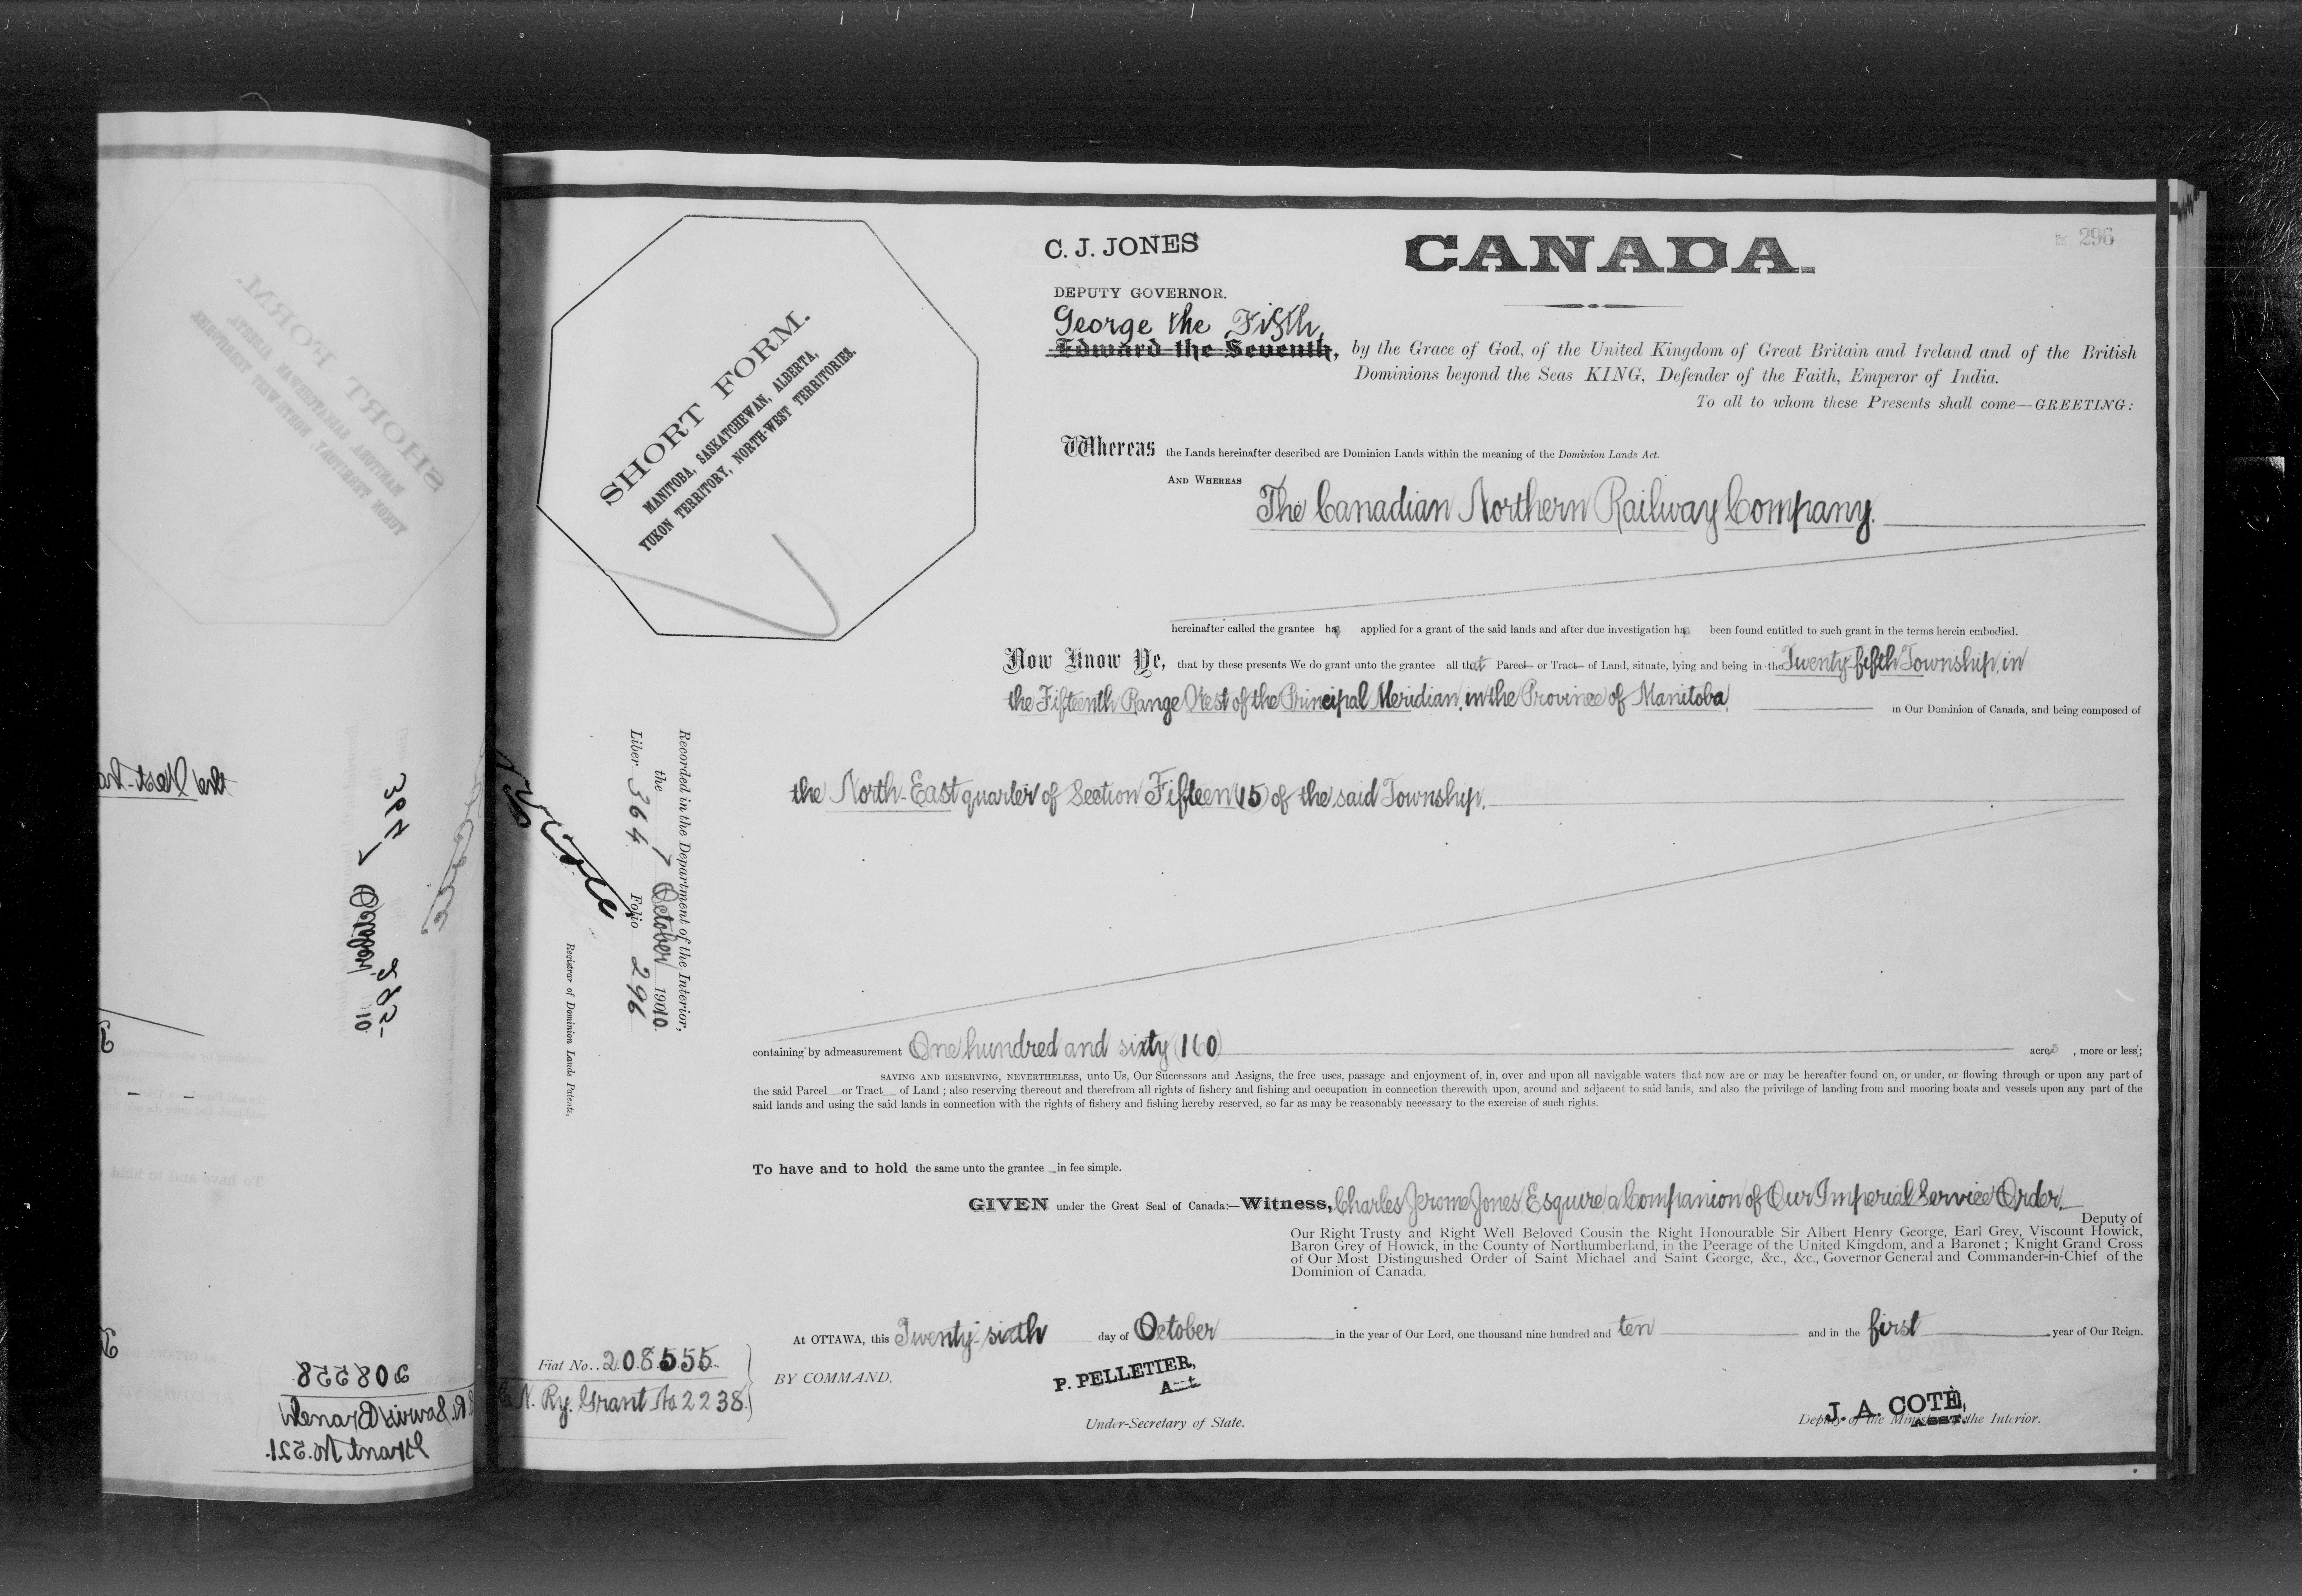 C. J. JONES
CANADA.
296
DEPUTY GOVERNOR.
George the Fifth,
Edward the Seventh, by the Grace of God, of the United Kingdom of Great Britain and Ireland and of the British
Dominions beyond the Seas KING, Defender of the Faith, Emperor of India.
To all to whom these Presents shall come—GREETING:
SHORT FORM.
MANITOBA, SASKATCHEWAN, ALBERTA,
YUKON TERRITORY, NORTH-WEST TERRITORIES.
Whereas the Lands hereinafter described are Dominion Lands within the meaning of the Dominion Lands Act.
AND WHEREAS
The Canadian Northern Railway Company.
hereinafter called the grantee has applied for a grant of the said lands and after due investigation has been found entitled to such grant in the terms herein embodied.
Now Know Ye, that by these presents We do grant unto the grantee all that Parcel or Tract of Land, situate, lying and being in the Twenty-fifth Township, in
the Fifteenth Range West of the Principal Meridian, in the Province of Manitoba, in Our Dominion of Canada, and being composed of
the North-East quarter of Section Fifteen (15) of the said Township.
Recorded in the Department of the Interior,
the 7 October 1910.
Liber 364 Folio 296
Registrar of Dominion Lands Patents.
containing by admeasurement One hundred and sixty (160) acres, more or less;
SAVING AND RESERVING, NEVERTHELESS, unto Us, Our Successors and Assigns, the free uses, passage and enjoyment of, in, over and upon all navigable waters that now are or may be hereafter found on, or under, or flowing through or upon any part of
the said Parcel or Tract of Land; also reserving thereout and therefrom all rights of fishery and fishing and occupation in connection therewith upon, around and adjacent to said lands, and also the privilege of landing from and mooring boats and vessels upon any part of the
said lands and using the said lands in connection with the rights of fishery and fishing hereby reserved, so far as may be reasonably necessary to the exercise of such rights.
To have and to hold the same unto the grantee in fee simple.
GIVEN under the Great Seal of Canada:—Witness, Charles Jerome Jones, Esquire, a Companion of Our Imperial Service Order,
Deputy of
Our Right Trusty and Right Well Beloved Cousin the Right Honourable Sir Albert Henry George, Earl Grey, Viscount Howick,
Baron Grey of Howick, in the County of Northumberland, in the Peerage of the United Kingdom, and a Baronet; Knight Grand Cross
of Our Most Distinguished Order of Saint Michael and Saint George, &c., &c., Governor General and Commander-in-Chief of the
Dominion of Canada.
At OTTAWA, this Twenty-sixth day of October in the year of Our Lord, one thousand nine hundred and ten and in the first year of Our Reign.
Fiat No. 208555
C. N. Ry. Grant No 2238.
BY COMMAND,
P. PELLETIER,
Act
Under-Secretary of State.
J. A. COTÉ,
ASST.
Deputy of the Minister of the Interior.